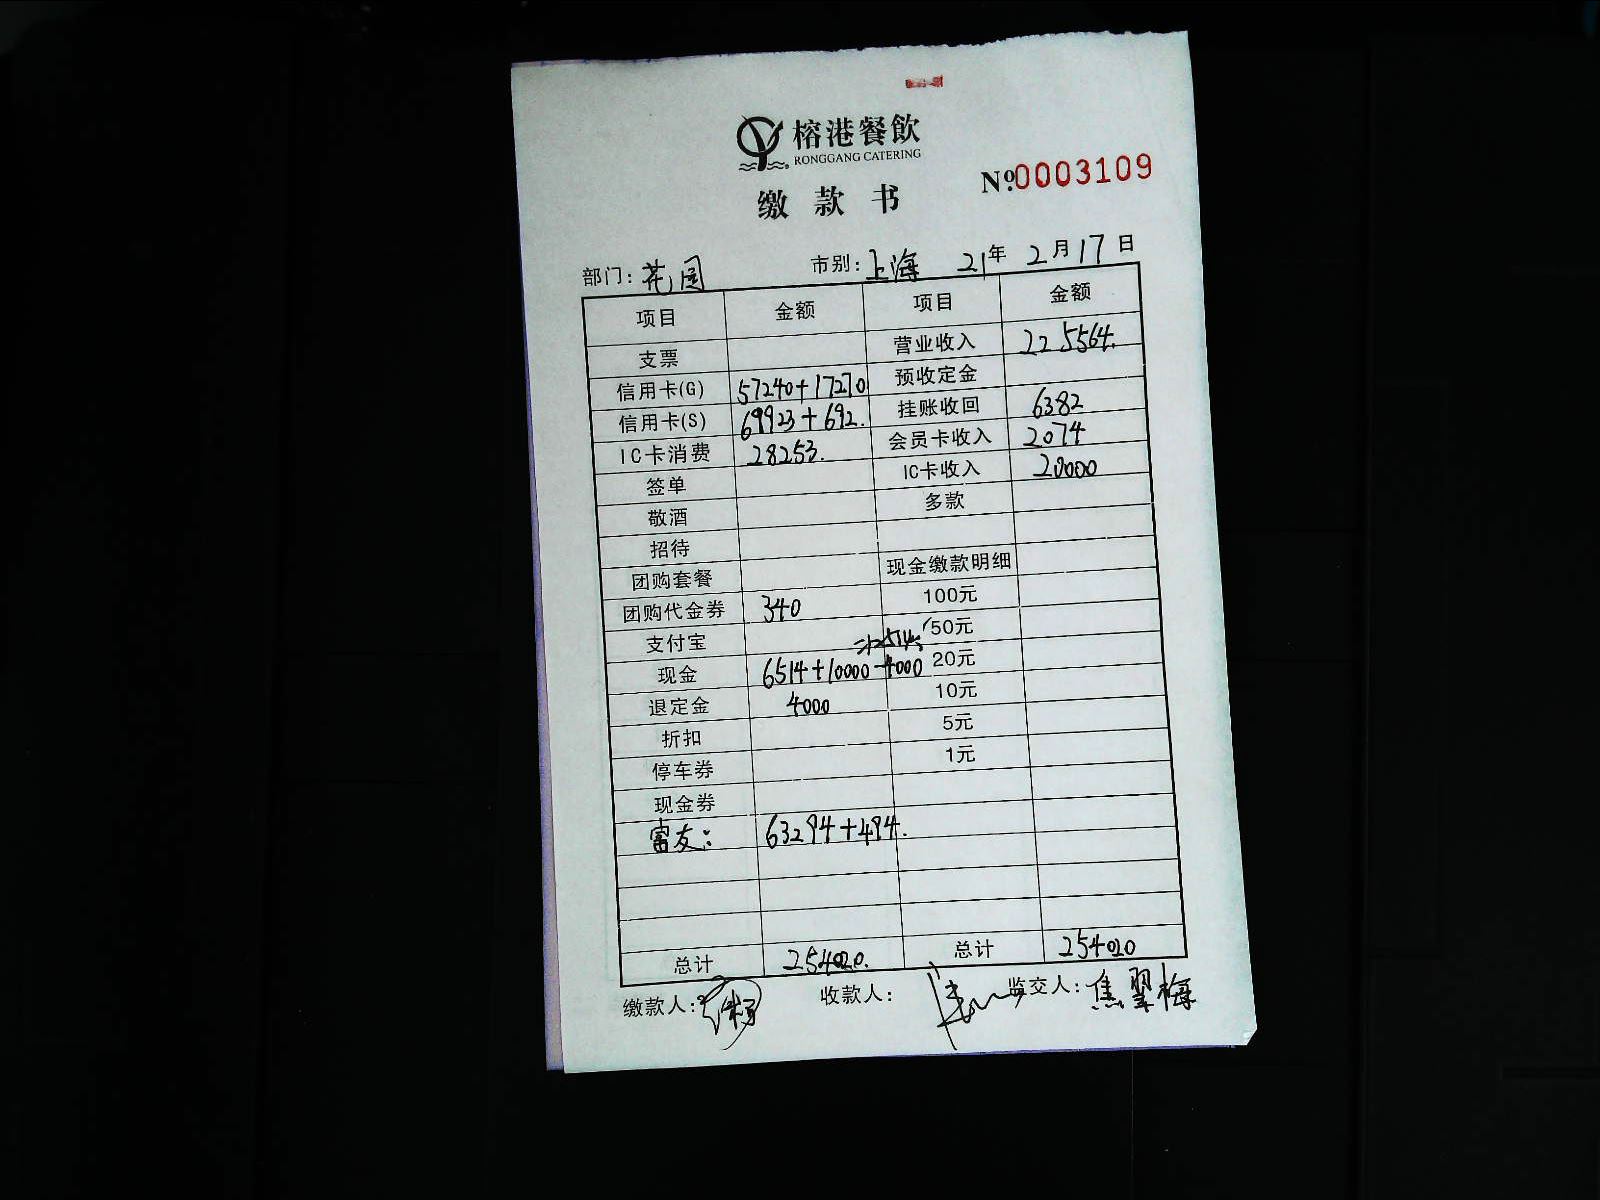 榕港餐飲
RONGGANG CATERING
缴款书
Nº.0003109
部门：花园 市别：上海 21年 2月17日
项目 金额 项目 金额
支票 营业收入 225564.
信用卡(G) 57240+17270 预收定金
信用卡(S) 69923+692. 挂账收回 6382
IC卡消费 28253. 会员卡收入 2074
签单 IC卡收入 20000
敬酒 多款
招待
团购套餐 现金缴款明细
团购代金券 340 100元
支付宝 50元
现金 6514+10000-4000 20元
退定金 4000 10元
折扣 5元
停车券 1元
现金券
富友： 63294+494.
总计 254020. 总计 254020
缴款人： 收款人： 监交人：焦翠梅